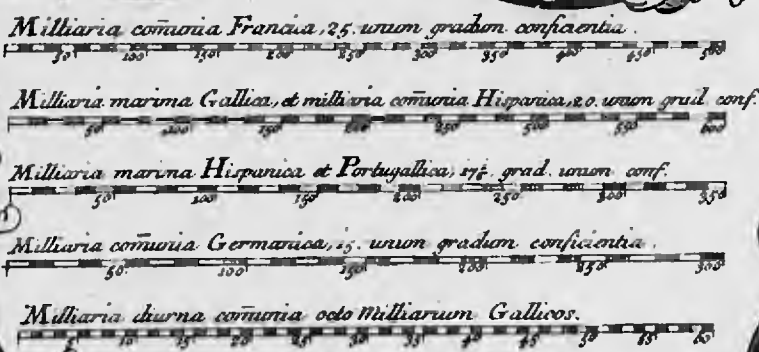 Milliaria com̄unia Francica, 25. unum gradum conficientia.
50 100 150 200 250 300 350 400 450 500
Milliaria marina Gallica, et milliaria com̄unia Hispanica, 20. unum grad conf.
50 200 150 200 250 500 550 600
Milliaria marina Hispanica et Portugallica, 17½. grad. unum conf.
50 100 150 200 250 300 350
Milliaria com̄unia Germanica, 15. unum gradum conficientia.
50 100 150 200 250 300
Milliaria diurna com̄unia octo Milliarium Gallicos.
5 10 15 20 25 30 35 40 45 50 55 60